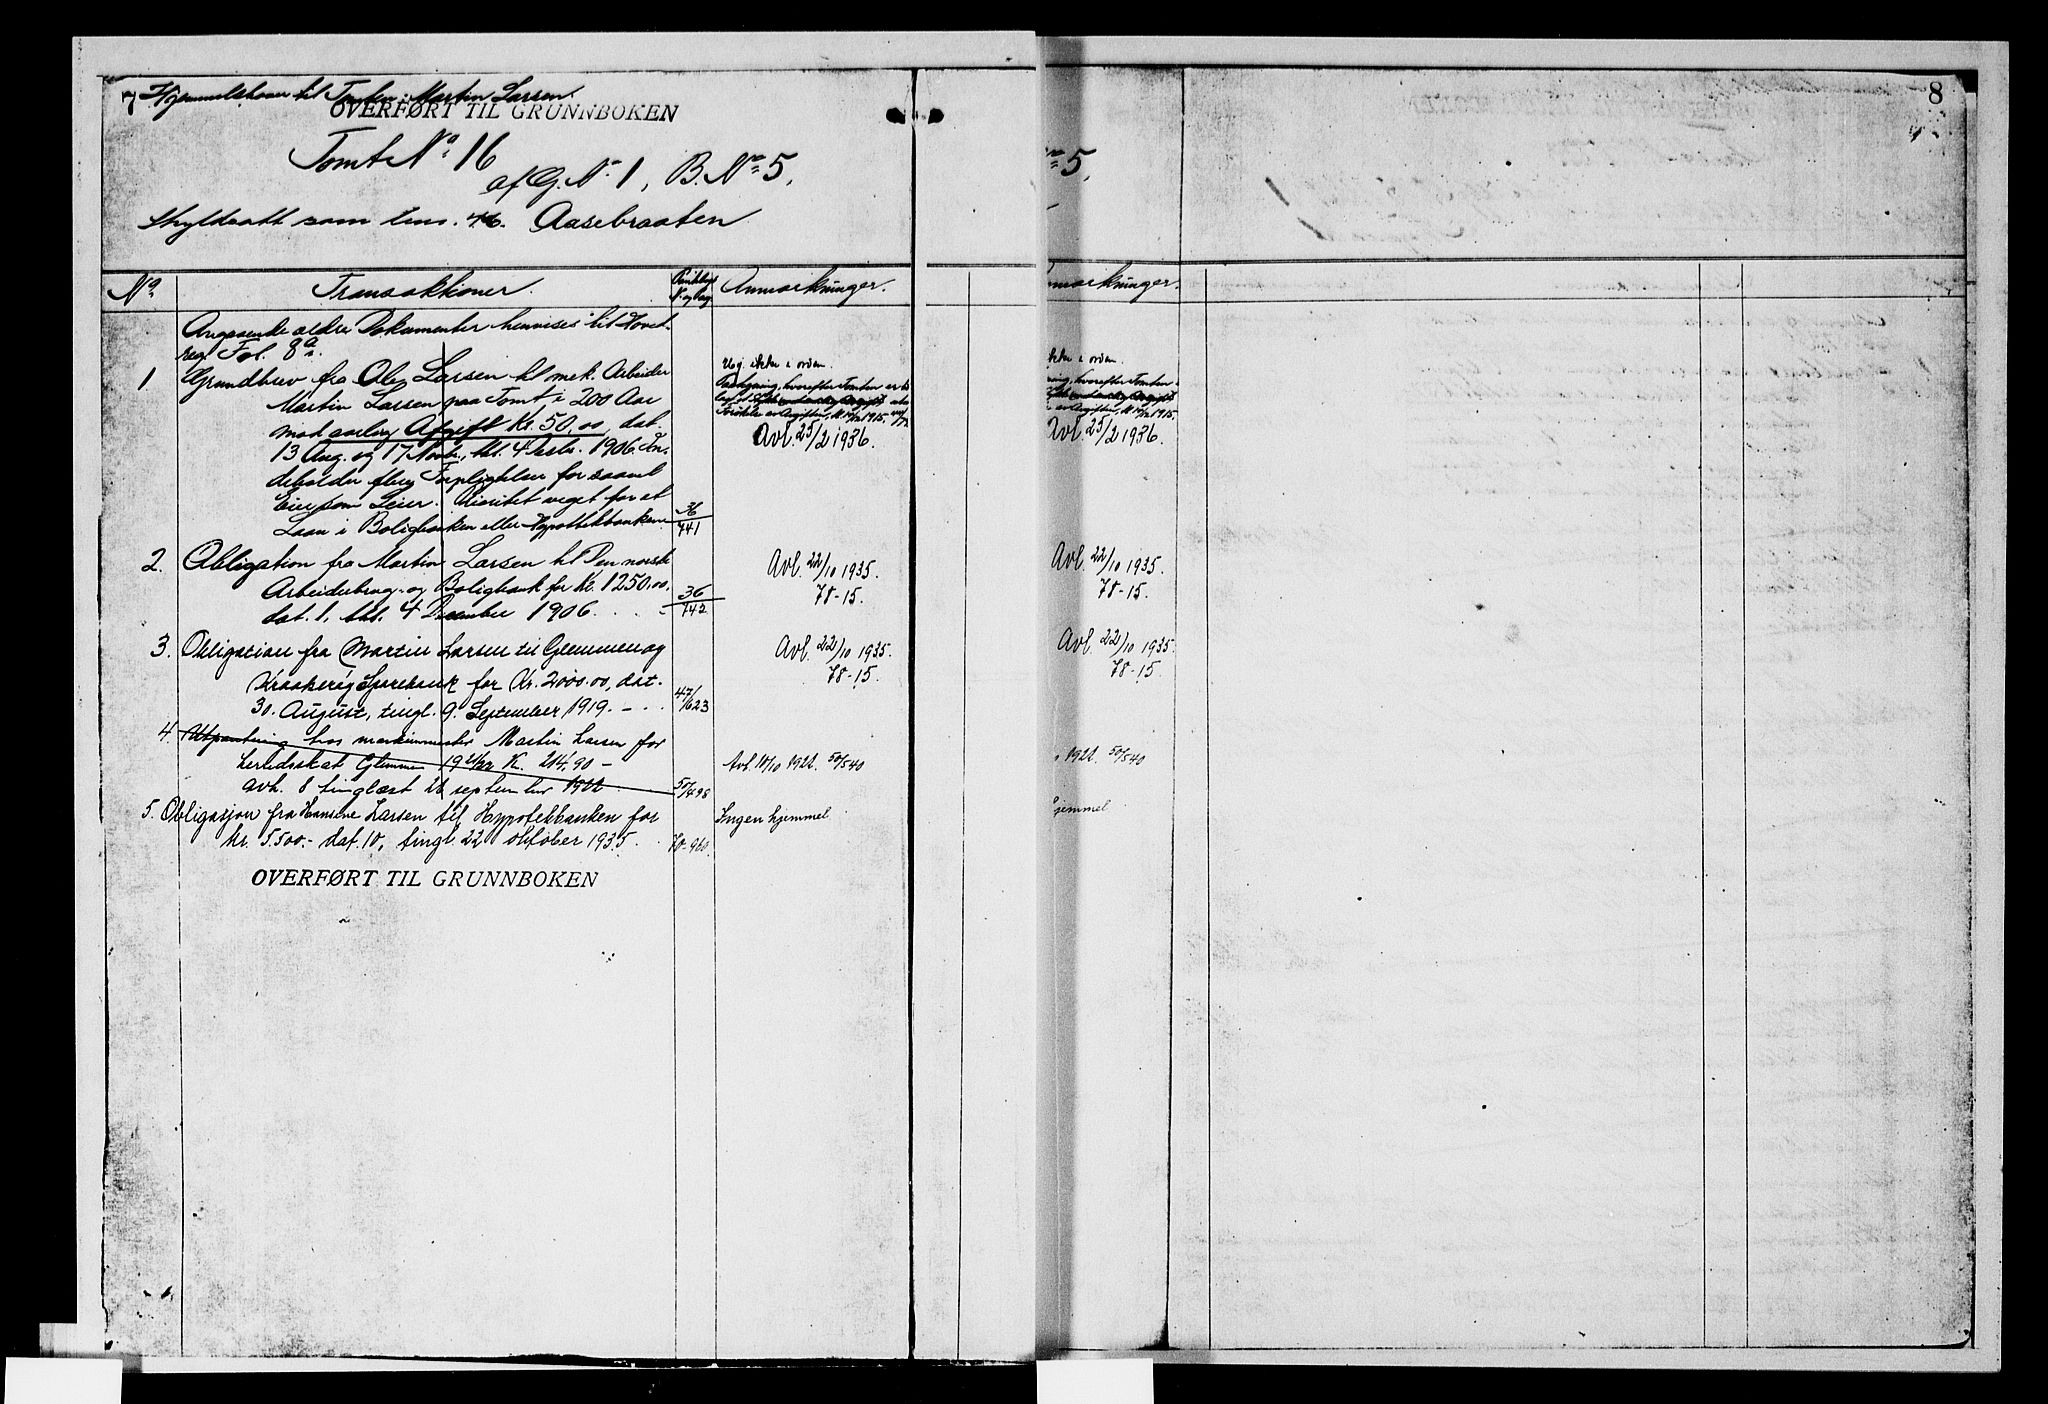 7 Hjemmelshaver til Tomten: Martin Larsen.
OVERFØRT TIL GRUNNBOKEN
Tomt No 16
af G. No 1, B. No 5.
Skyldsatt som Aasebraaten
No Transaktioner Anmærkninger.
Angaaende ældre Dokumenter henvises til Hoved-
reg. Fol. 8a.
1 Grundbrev fra Ole Larsen til mek. Arbeider
Martin Larsen paa Tomt i 200 Aar
mod aarlig Afgift Kr. 50,00, dat.
13 Aug. og 17 Novbr., thl. 4 Desbr. 1906. In-
deholder flere Forpligtelser for saavel
Eier som Leier. Prioritet veget for et
Laan i Boligbanken eller Hypothekbanken
36/741
ikke i orden.
Avl. 25/2 1936.
2. Obligation fra Martin Larsen til Den norske
Arbeiderbrug- og Boligbank for Kr. 1250.00,
dat. 1, thl. 4 December 1906. . . .
36/742
Avl. 22/10 1935.
78-15.
3. Obligation fra Martin Larsen til Glemmen og
Kraakerøy Sparebank for Kr. 2000.00, dat.
30. August, tingl. 9. September 1919. - . .
47/623
Avl. 22/10 1935.
78-15.
4. Utpantning hos maskinmester Martin Larsen for
herredsskat Glemmen 1921/22 K. 214,90 -
avh. 8 tinglæst 26 september 1922
50/498
Avl. 10/10 1922. 50/540
5. Obligasjon fra Hansine Larsen til Hypotekbanken for
kr. 5.500.- dat. 10, tingl. 22 oktober 1935.
78-960.
Ingen hjemmel
OVERFØRT TIL GRUNNBOKEN
8
No 5.
mærkninger.
ikke i orden.
Avl. 25/2 1936.
Avl. 22/10 1935.
78-15.
Avl. 22/10 1935.
78-15.
1922. 50/540
hjemmel